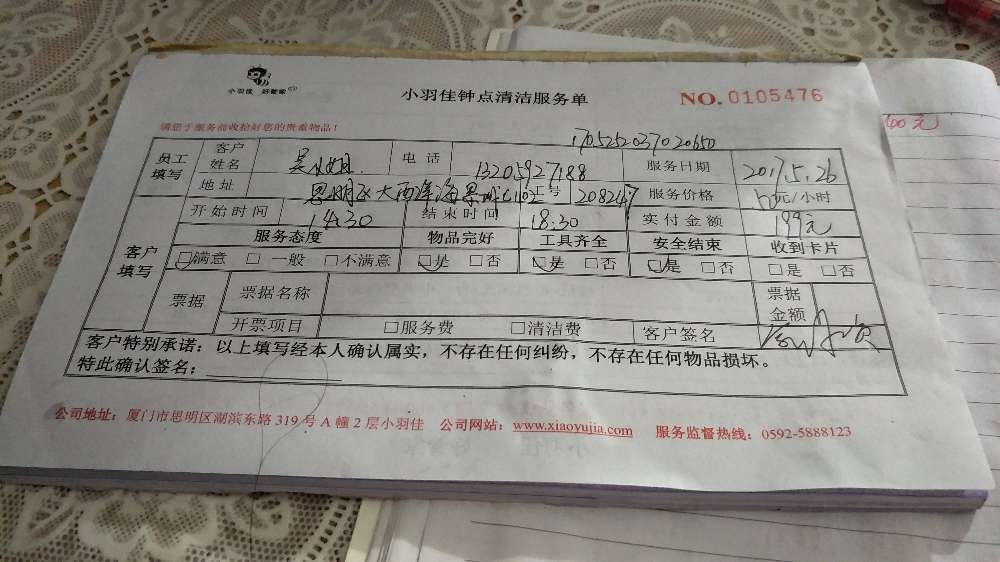 小羽佳 好管家
小羽佳钟点清洁服务单
NO.0105476
请您于服务前收拾好您的贵重物品!
1705252037020650
员工填写 客户姓名 吴 电话 13205927188 服务日期 2017.5.26
地址 思明区大西洋海景城C1102 工号 208247 服务价格 50元/小时
开始时间 14:30 结束时间 18:30 实付金额 199元
客户填写 服务态度 物品完好 工具齐全 安全结束 收到卡片
□满意 □一般 □不满意 □是 □否 □是 □否 □是 □否 □是 □否
票据 票据名称 票据金额
开票项目 □服务费 □清洁费 客户签名
客户特别承诺:以上填写经本人确认属实,不存在任何纠纷,不存在任何物品损坏。
特此确认签名:
公司地址:厦门市思明区湖滨东路319号A幢2层小羽佳 公司网站:www.xiaoyujia.com 服务监督热线:0592-5888123
00元